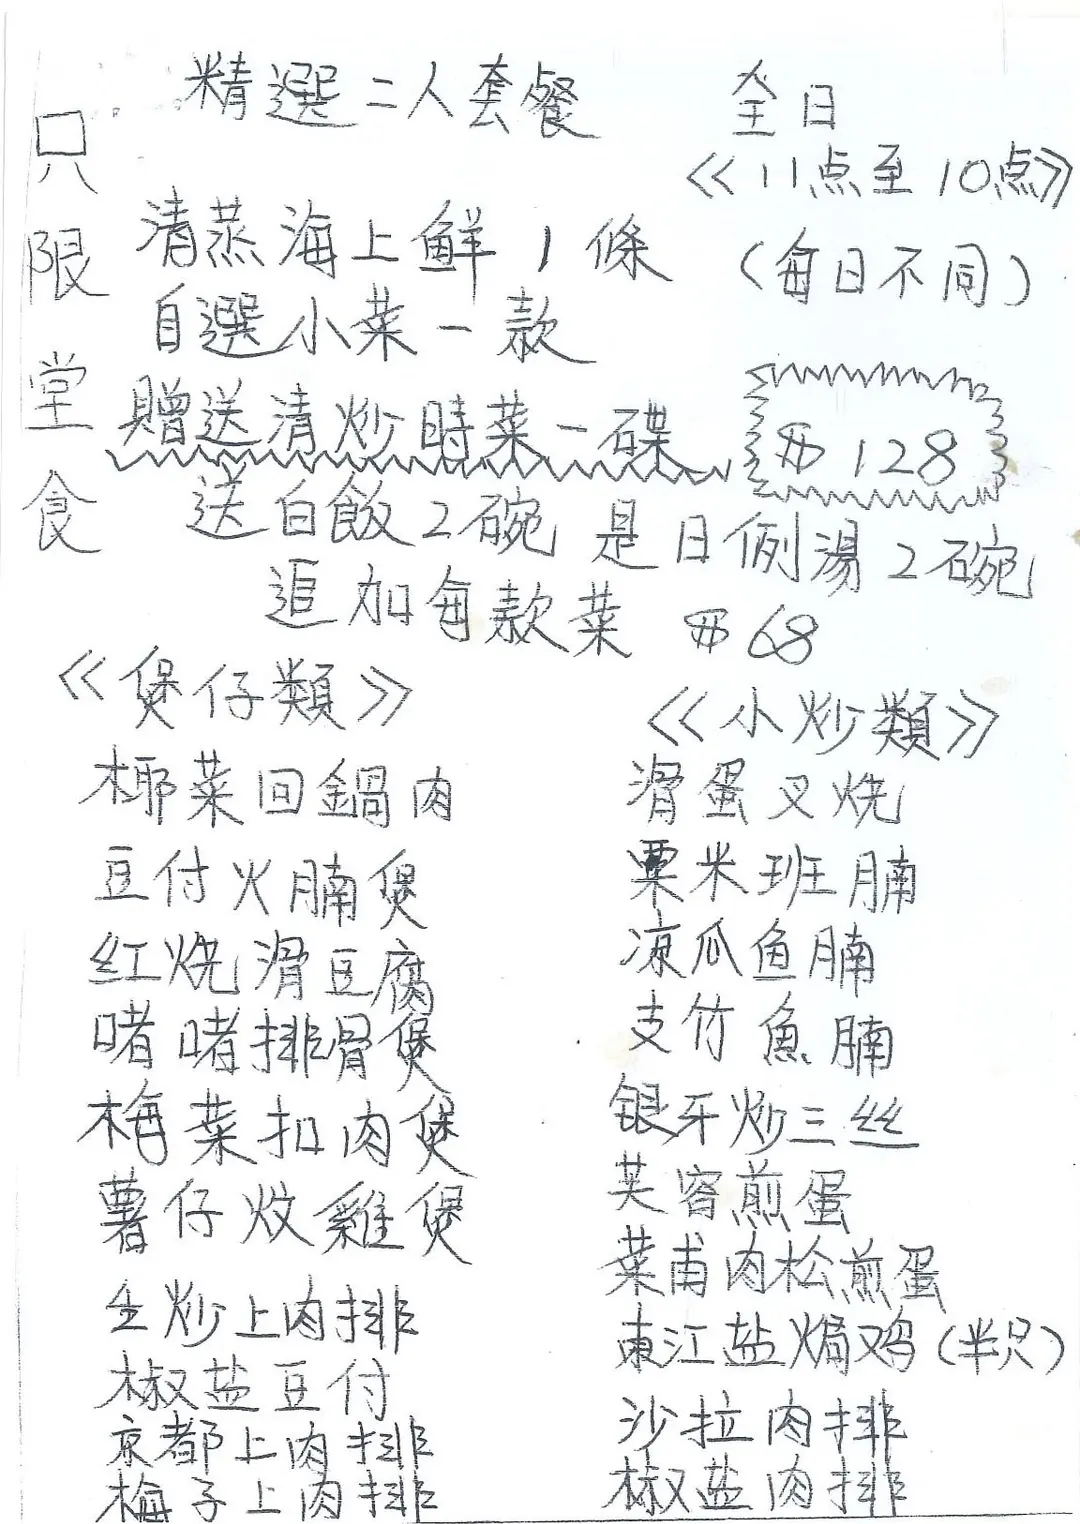 精選二人套餐
全日
《11点至10点》
只限堂食
清蒸海上鮮1條
(每日不同)
自選小菜一款
贈送清炒時菜一碟
$128
送白飯2碗 是日例湯2碗
追加每款菜 $68
《煲仔類》
椰菜回鍋肉
豆付火腩煲
红烧滑豆腐
啫啫排骨煲
梅菜扣肉煲
薯仔炆雞煲
生炒上肉排
椒盐豆付
京都上肉排
梅子上肉排
《小炒類》
滑蛋叉烧
粟米班腩
凉瓜鱼腩
支竹魚腩
银牙炒三丝
芙容煎蛋
菜甫肉松煎蛋
東江盐焗鸡(半只)
沙拉肉排
椒盐肉排